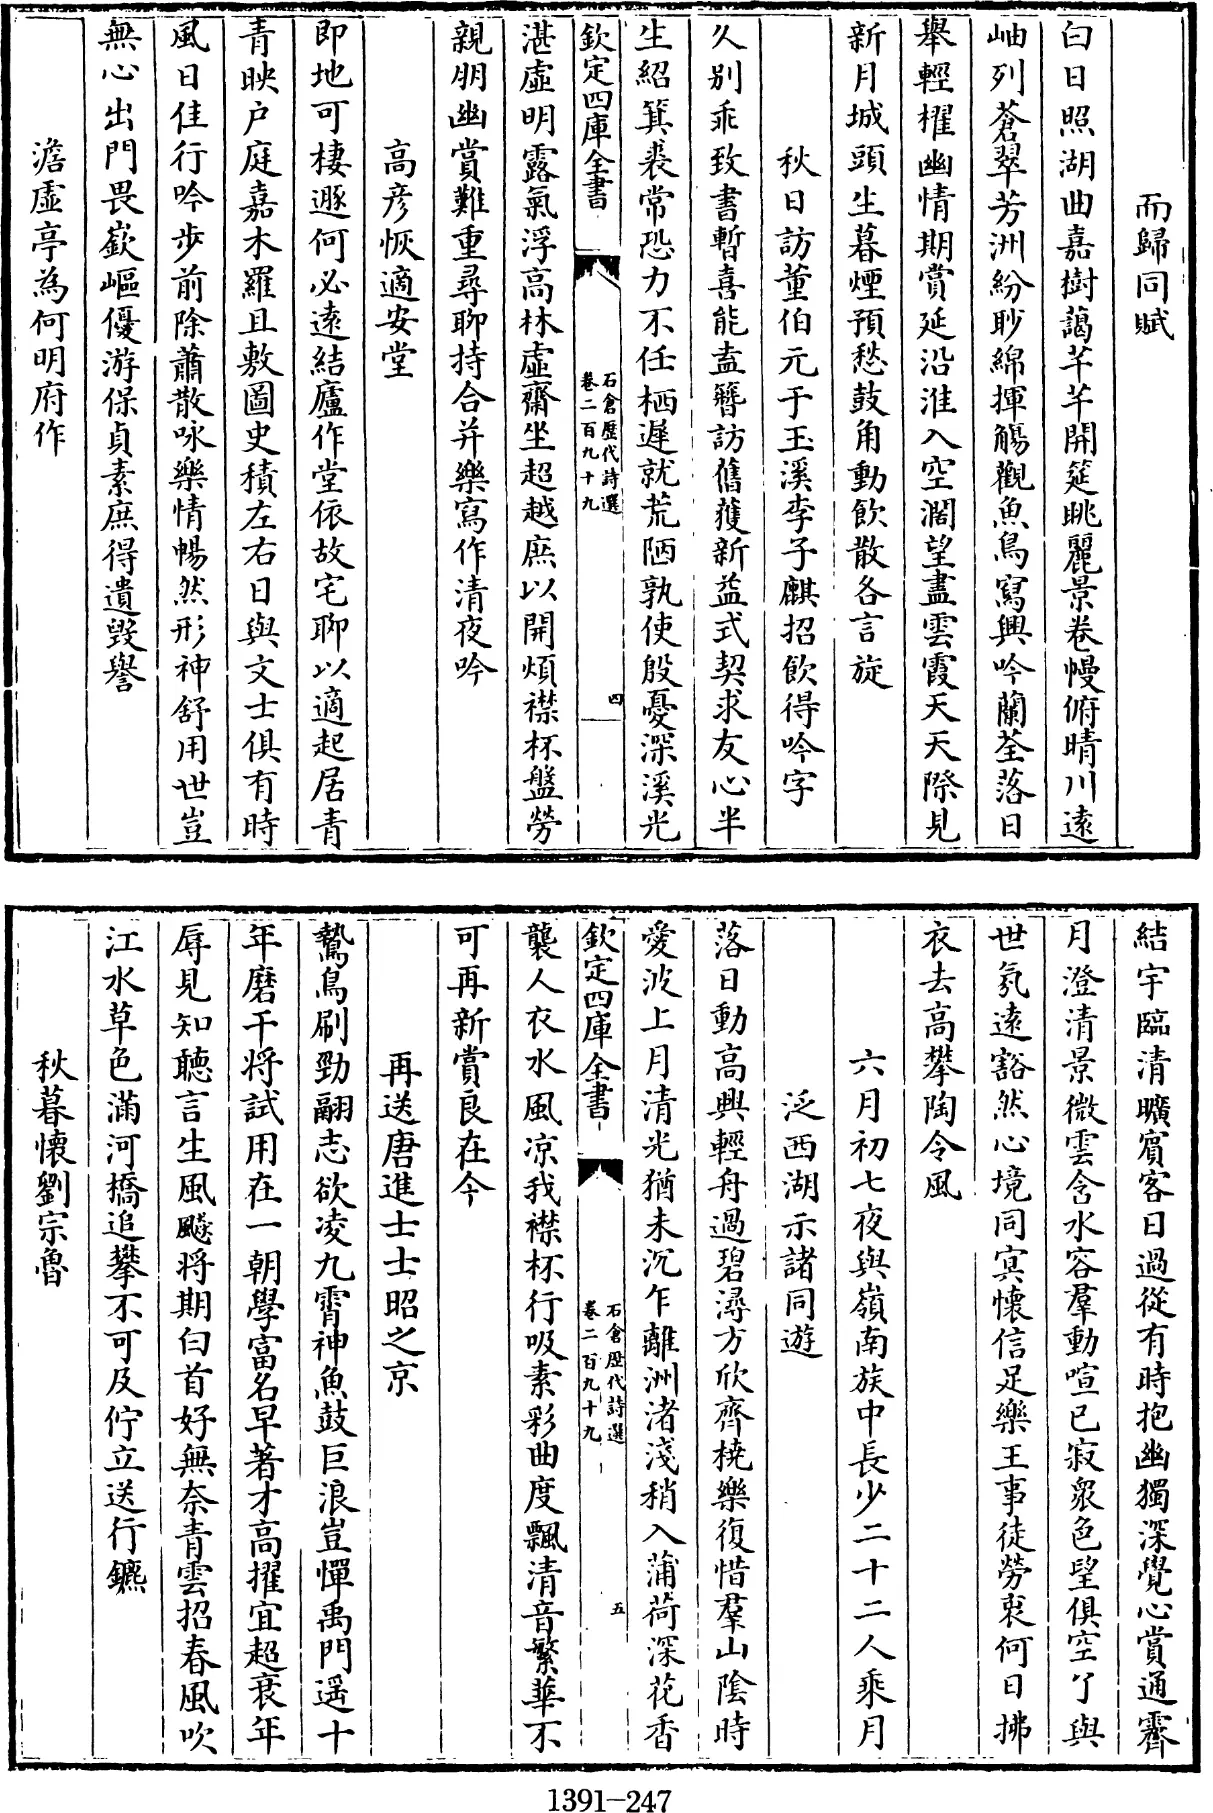 而歸同賦
白日照湖曲嘉樹藹芊芊開筵眺麗景卷幔俯晴川遠
岫列蒼翠芳洲紛眇綿揮觴觀魚鳥寫興吟蘭荃落日
舉輕櫂幽情期賞延沿淮入空濶望盡雲霞天天際見
新月城頭生暮煙預愁鼓角動飲散各言旋
秋日訪董伯元于玉溪李子麒招飲得吟字
久別乖致書暫喜能盍簪訪舊獲新益式契求友心半
生紹箕裘常恐力不任栖遲就荒陋孰使殷憂深溪光
欽定四庫全書
石倉歷代詩選
卷二百九十九
四
湛虛明露氣浮高林虛齋坐超越庶以開煩襟杯盤勞
親朋幽賞難重尋聊持合并樂寫作清夜吟
高彦恢適安堂
即地可棲遯何必遠結廬作堂依故宅聊以適起居青
青映户庭嘉木羅且敷圖史積左右日與文士俱有時
風日佳行吟步前除蕭散咏樂情暢然形神舒用世豈
無心出門畏嶔嶇優游保貞素庶得遺毀譽
澹虛亭為何明府作
結宇臨清曠賓客日過從有時抱幽獨深覺心賞通霽
月澄清景微雲含水容羣動喧已寂衆色望俱空了與
世氛遠豁然心境同冥懷信足樂王事徒勞衷何日拂
衣去高攀陶令風
六月初七夜與嶺南族中長少二十二人乘月
泛西湖示諸同遊
落日動高興輕舟過碧潯方欣齊橈樂復惜羣山陰時
愛波上月清光猶未沉乍離洲渚淺稍入蒲荷深花香
欽定四庫全書
石倉歷代詩選
卷二百九十九
五
襲人衣水風凉我襟杯行吸素彩曲度飄清音繁華不
可再新賞良在今
再送唐進士士昭之京
鷙鳥刷勁翮志欲凌九霄神魚鼓巨浪豈憚禹門遥十
年磨干將試用在一朝學富名早著才高擢宜超衰年
辱見知聽言生風飈將期白首好無奈青雲招春風吹
江水草色滿河橋追攀不可及佇立送行鑣
秋暮懷劉宗魯
1391-247